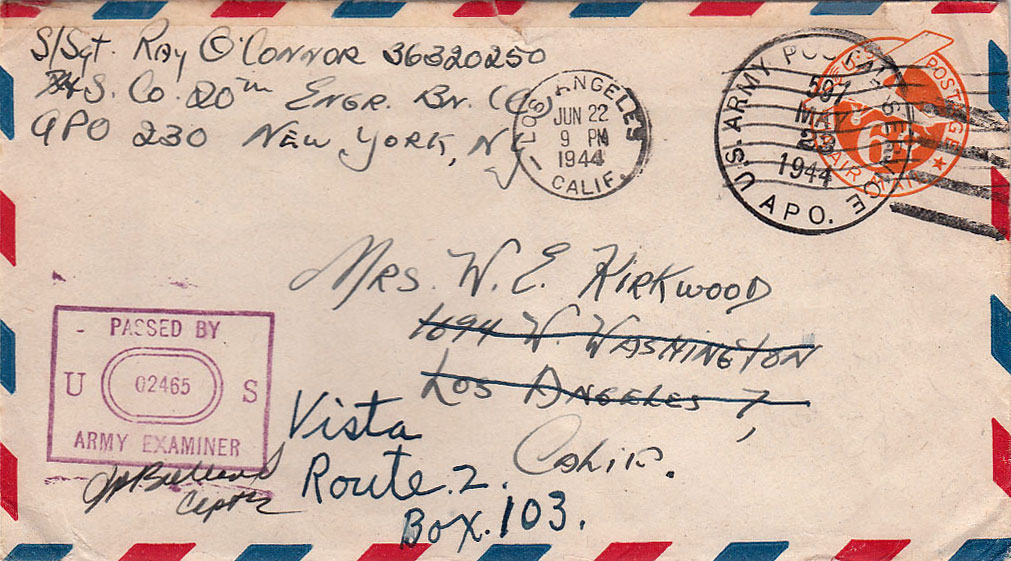 S/Sgt. Ray O'Connor 36320250
H+S. Co. 20th Engr. Bn. (C)
APO 230 New York, NY
LOS ANGELES
JUN 22
9 PM
1944
CALIF.
U.S. ARMY POSTAL SERVICE
591
MAY
23
1944
APO.
POSTAGE
6¢
AIR MAIL
Mrs. W. E. Kirkwood
1694 W. Washington
Los Angeles 7,
Calif.
Vista
Route. 2.
Box. 103.
PASSED BY
U 02465 S
ARMY EXAMINER